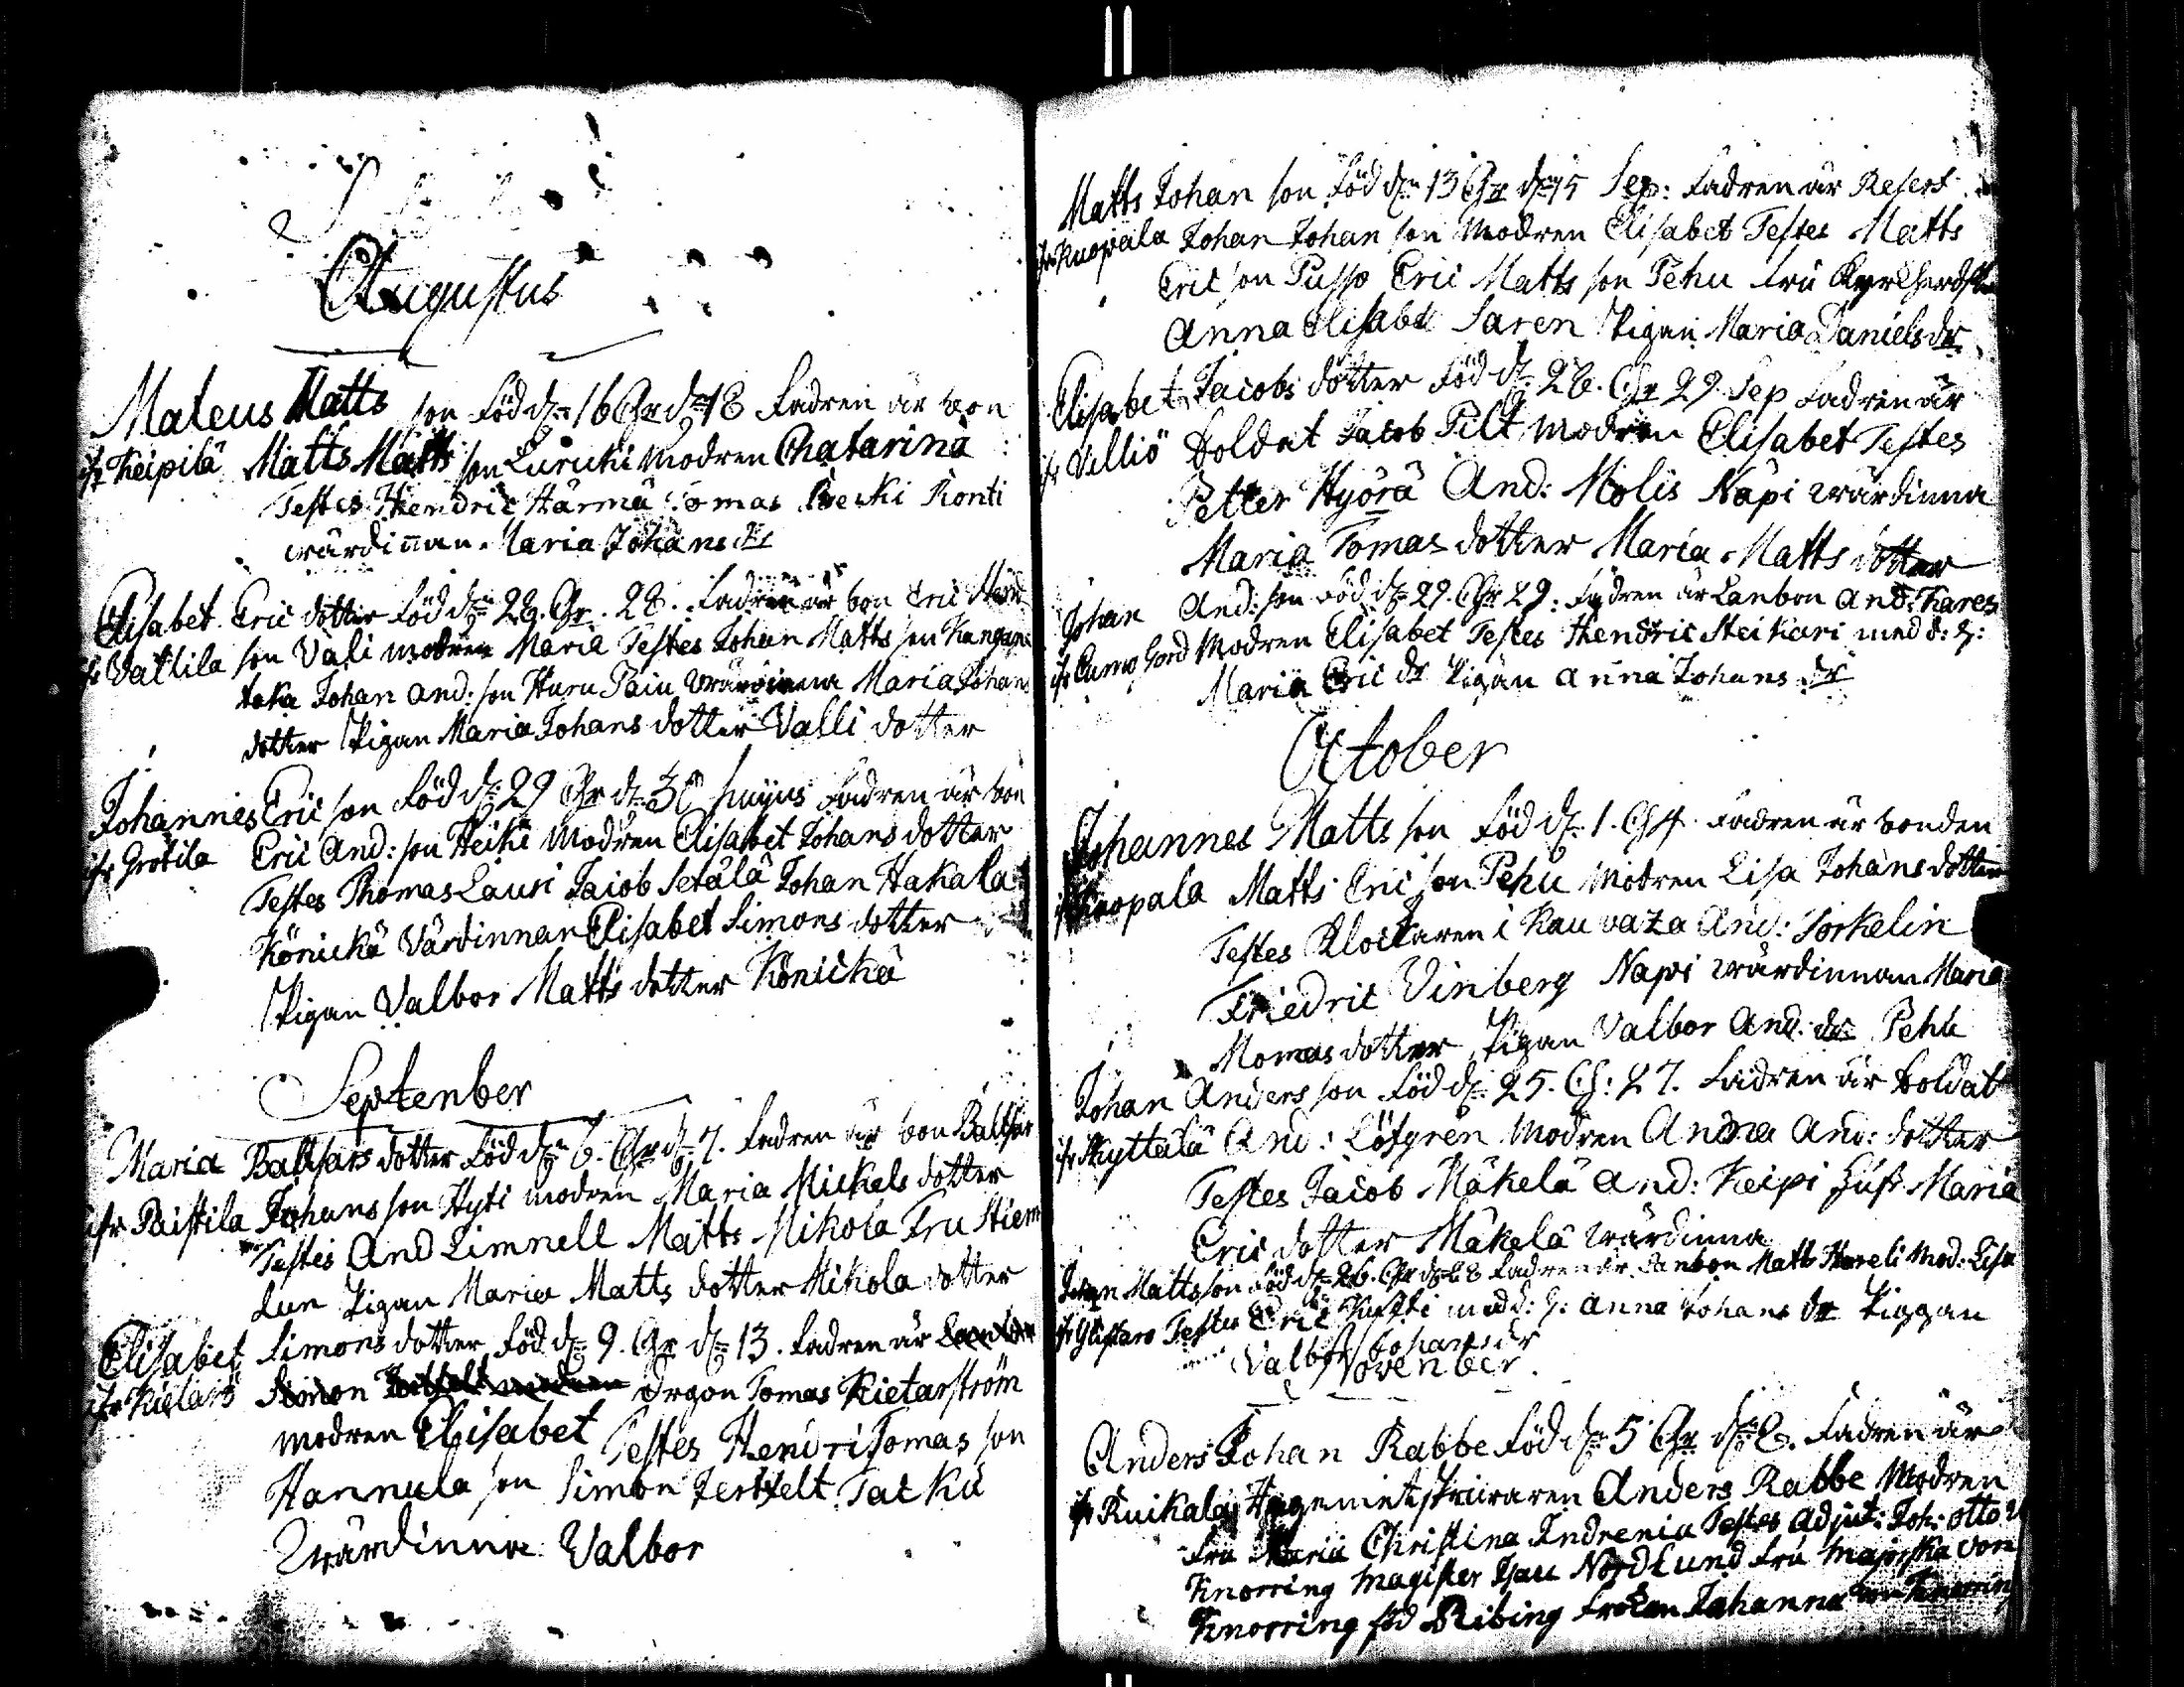 Augustus
Mateus Matts son Född dn 16 Chr dn 18 Fadren är bon
ifr Keipilä Matts Matts son Luruki modren Chatarina
Testes Hendric Härmä Tomas Konti
wärdinnan Maria Johans dr
Elisabet Eric dotter Född dn 28. Chr. 28. Fadren är bon Eric
ifr Vallila son Vali modren Maria Testes Johan Matts son Kangan
taka Johan And: son Huru Paiu wärdinna Maria Johans
dotter Pigan Maria Johans dotter Valli dotter
Johannes Eric son Född dn 29 Chr dn 30 hujus Fadren är bon
ifr Grotila Eric And: son Heiki modren Elisabet Johans dotter
Testes Thomas Lauri Jacob Setälä Johan Hakala
Könickä Värdinnan Elisabet Simons dotter
Pigan Valbor Matts dotter Könickä
Septenber
Maria Baltsars dotter Född dn 6. Chr dn 7. Fadren är bon Baltsar
ifr Paistila Johans son Hyti modren Maria Mickels dotter
Testes And Limnell Matts Mikola Fru Stiern
Lun Pigan Maria Matts dotter Mikola dotter
Elisabet Simons dotter Född dn 9. Chr dn 13. Fadren är
ifr Simon Dragon Tomas Kietarström
modren Elisabet Testes Hendri Tomas son
Hannula son Simon Tacku
Wärdinna Valbor
Matts Johan son Född dn 13 Chr dn 15 Sep: Fadren är Reserf
ifr Kuopala Johan Johan son Modren Elisabet Testes Matts
Eric son Pusso Eric Matts son Pehu Fru
Anna Elisabet Saren Pigan Maria Daniels dr
Elisabet Jacobs dotter Född dn 28. Chr 29 Sep Fadren är
ifr Villiö Soldat Jacob Pilt modren Elisabet Testes
Petter Hyörä And: Molis Näpi wärdinna
Maria Tomas dotter Maria Matts dotter
Johan And: son Född dn 29. Chr 29: Fadren är Lanbon And: Kares
ifr Cumo gord Modren Elisabet Testes Hendric Steikari med d: h:
Maria Eric dr Pigan Anna Johans dr
October
Johannes Matts son Född dn 1. Ch 4. Fadren är bonden
ifr Kuopala Matts Eric son Pehu Modren Lisa Johans dotter
Testes Klockaren i Kauvaza And: Torkelin
Friedric Vinberg Napi wärdinnan Maria
Momas dotter Pigan Valbor And: dr Pehu
Johan Anders son Född dn 25. Ch: 27. Fadren är Soldat
ifr Kyttälä And: Löfgren Modren Anna And: dotter
Testes Jacob Mäkelä And: Keipi hust Maria
Eric dotter Mäkelä wärdinna
Johan Matts son Född dn 26. Chr dn 28 Fadren är Lanbon Matts Mod: Lisa
ifr Testes Eric med d: h: Anna Johans dr Piggan
Valbor Johans dr
November.
Anders Johan Rabbe Född dn 5 Chr dn 8. Fadren är
ifr Ruikala Regemintskrivaren Anders Rabbe Modren
Fru Maria Christina Indrenia Testes Adjut: Joh: Otto v
Knorring Magister Isac Nordlund Fru Majorska von
Knorring född Ribing Fröken Johanna von Knorring